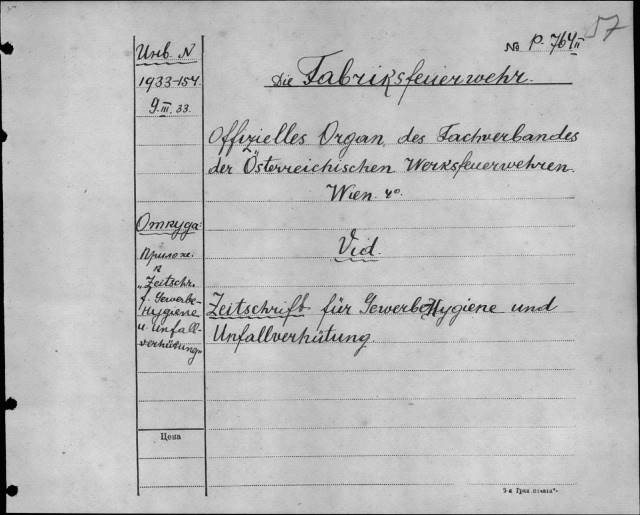 57
№ P. 764 II
Инв. N
1933-154.
9.III.33.
Die Fabriksfeuerwehr.
Offizielles Organ des Fachverbandes
der Österreichischen Werksfeuerwehren.
Wien. 4°.
Откуда:
Прилож.
к
"Zeitschr.
f. Gewerbe-
Hygiene
u. Unfall-
verhütung"
Vid.
Zeitschrift für Gewerbe Hygiene und
Unfallverhütung.
Цена